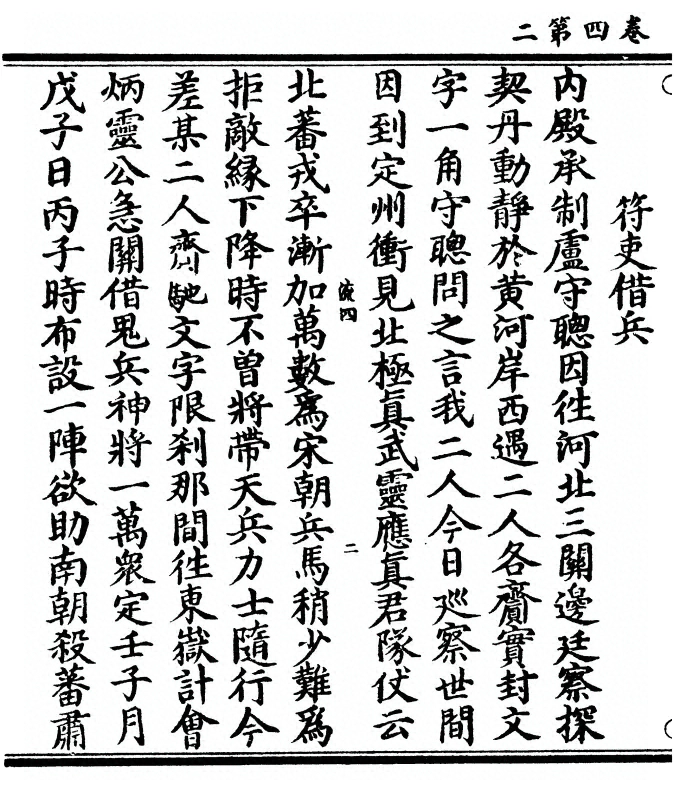 卷四第二
符吏借兵
內殿承制盧守聰因徃河北三關邊廷察探
契丹動靜於黄河岸西遇二人各齎實封文
字一角守聰問之言我二人今日巡察世間
因到定州衝見北極眞武靈應眞君隊仗云
流四
二
北蕃戎卒漸加萬數爲宋朝兵馬稍少難爲
拒敵緣下降時不曾將帶天兵力士隨行今
差某二人齊馳文字限刹那間徃東嶽計會
炳靈公急關借鬼兵神將一萬衆定壬子月
戊子日丙子時布設一陣欲助南朝殺蕃肅